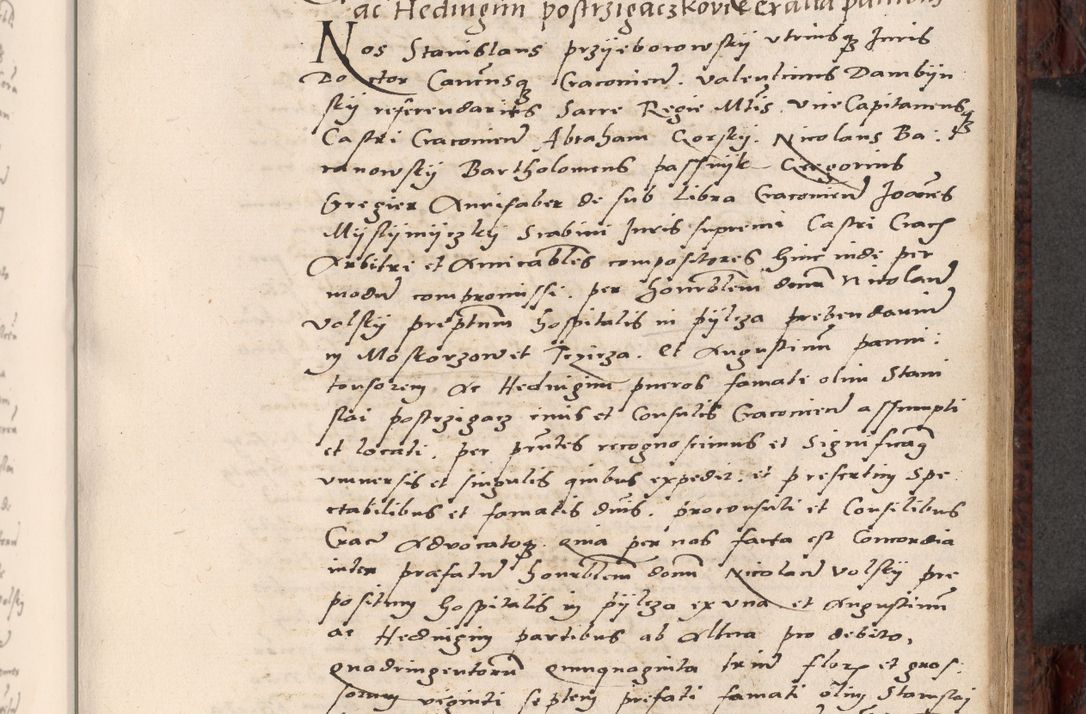 ac Hedvigim postrzigaczkovie ex alia partibus
Nos Stanislaus przyieborowskÿ utriusqꝫ Juris
Doctor Canc̃usqꝫ Cracovieñ. Valentinus Dambÿn
skÿ referendarius Sacre Regie Mt̃is. vice Capitaneusqꝫ
Castri Cracovieñ Abraham Gorskÿ. Nicolaus Ba:
ranowskÿ Bartholomeus passnÿk Gregorius
Gregier Aurifaber de sub libra Cracovieñ Joañes
MÿskÿmÿczkÿScabini Juris supremi Castri Crac̃
Arbitri et Amicabl̃es compositores hinc inde per
modũ compromissi. per honorbl̃em dñum Nicolaũ
Volskÿ prep̃tum hospitalis in pÿlcza prebendariũ
in Moskorzow et Tczicza. Et Augustinũ panni:
tonsorem Ac Hedvigim pueros famati olim Stani
slai postrzigacz civis et Consulis Cracovieñ assumpti
et locati. per p̃ntes recognoscimus et Significamꝰ
universis et singulis quibus expedit: et presertim Spe
ctabilibus et famatis dñis. proconsuli et Consulibus
Crac̃ Advocatoqꝫ. Quia per nos facta est Concordia
inter præfatũ honorbl̃em dñum Nicolaũ Volskÿ pre
positum hospitalis in pÿlcza ex una et Augustinũ
ac Hedvigim partibus ab Altera pro debito,
quadringentorũ quinquaginta triũ flor. et gros:
sorum viginti septem prefati famati olim Stanislai